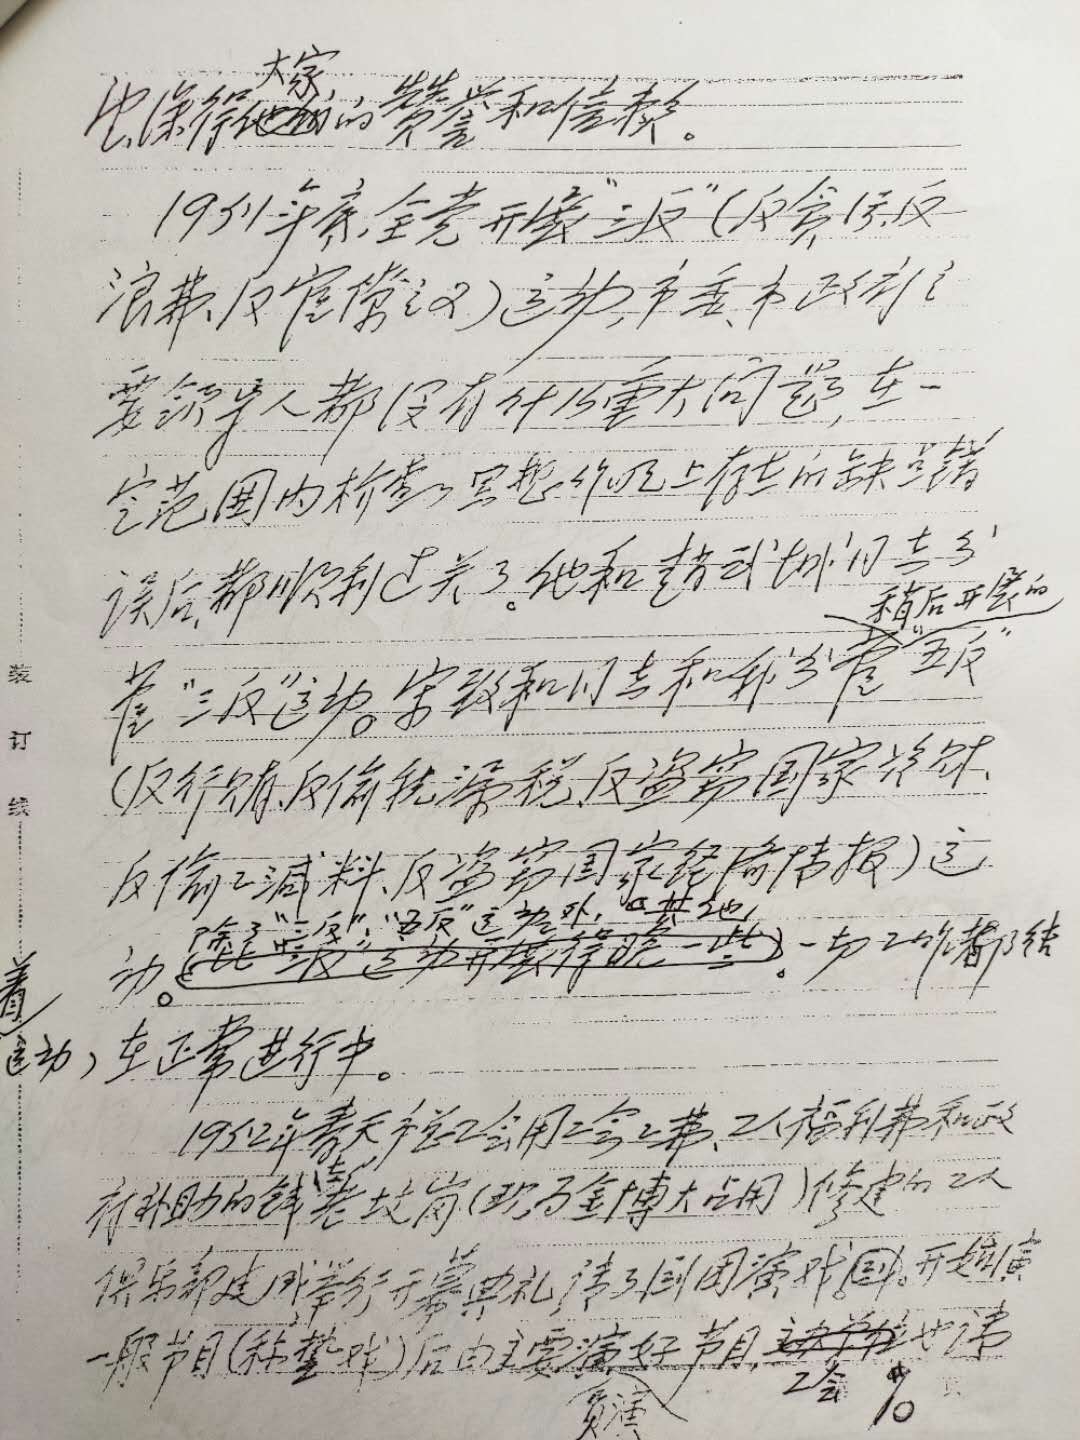 大家
也深得他们的赞誉和信赖。
1951年底,全党开展“三反”(反贪污、反
浪费、反官僚主义)运动,市委、市政府主
要领导人都没有什么重大问题,在一
定范围内检查了思想作风上存在的缺点错
误后,都顺利过关了。他和赵武成同志分
稍后开展的
管“三反”运动。宋致和同志和我分管“五反”
(反行贿、反偷税漏税、反盗窃国家资财、
反偷工减料、反盗窃国家经济情报)运
除了“三反”、“五反”运动外,其他
动。“三反”运动开展得晚一些。一切工作都结
着
运动,在正常进行中。
1952年春天市总工会用工会会费、工人福利费和政
府补助的钱在老坟岗(现为金博大占用)修建的工人
俱乐部建成举行开幕典礼,请了剧团演戏。开始演
一般节目(称垫戏)后由主要演好节目,主办单位也请
员演
工会
装
订
线